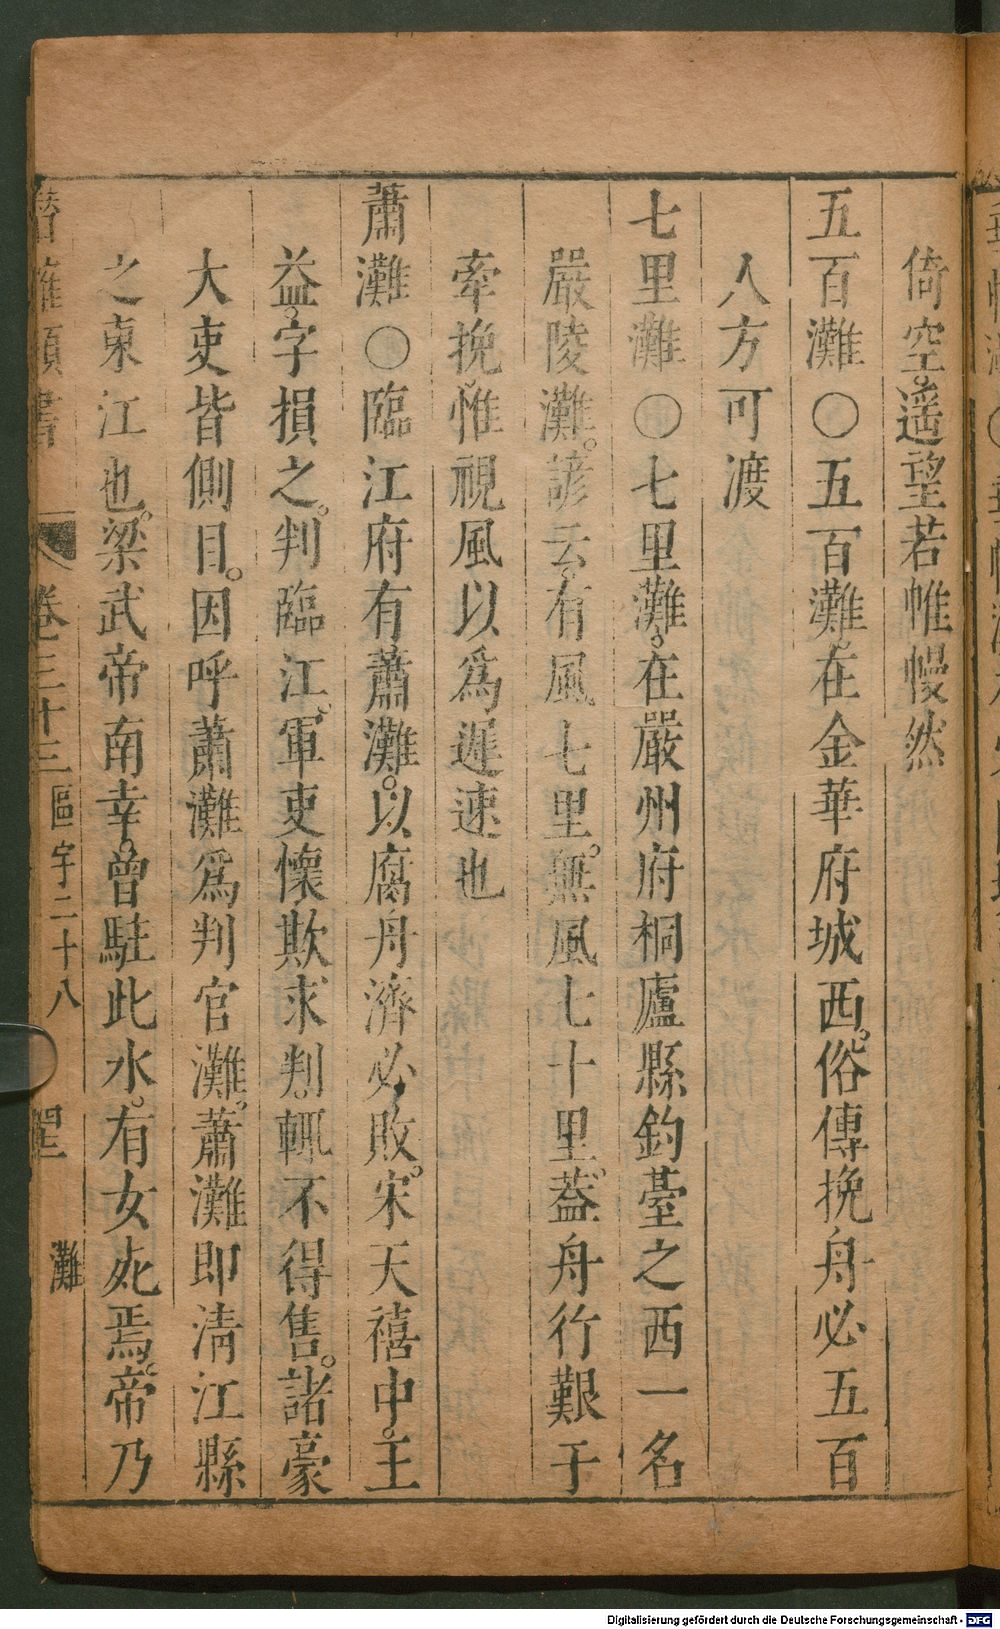 倚空。遥望若帷幔然
五百灘○五百灘。在金華府城西。俗傳挽舟必五百
人方可渡
七里灘○七里灘。在嚴州府桐廬縣釣臺之西一名
嚴陵灘。諺云。有風七里。無風七十里。蓋舟行艱于
牽挽。惟視風以為遲速也
蕭灘○臨江府有蕭灘。以腐舟濟必敗。宋天禧中。王
益。字損之。判臨江。軍吏懷欺求判。輒不得售。諸豪
大吏皆側目。因呼蕭灘爲判官灘。蕭灘即清江縣
之東江也。梁武帝南幸。曾駐此水。有女死焉。帝乃
卷三十三 區宇二十八 灘
Digitalisierung gefördert durch die Deutsche Forschungsgemeinschaft - DFG